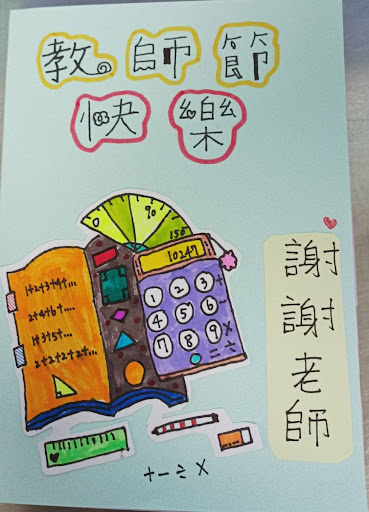 教師節
快樂
0
90
150
10247
1+2+3+4+...
2+4+6+...
1+3+5+...
2+2+2+2+...
1 2 3 +
4 5 6 -
7 8 9 ×
= ÷
謝謝老師
+ - ÷ ×